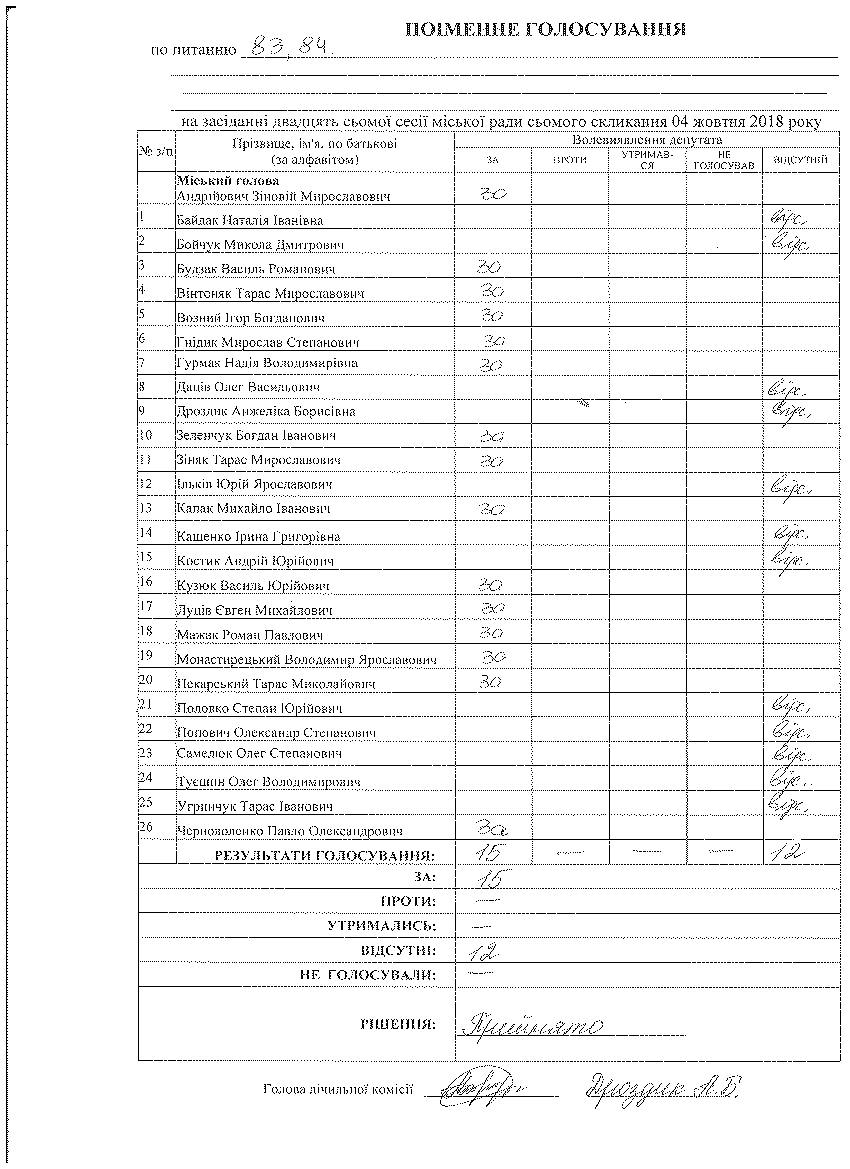 ПОІМЕННЕ ГОЛОСУВАННЯ
по питанню 83, 84.
на засіданні двадцять сьомої сесії міської ради сьомого скликання 04 жовтня 2018 року
№ з/п Прізвище, ім'я, по батькові (за алфавітом) Волевиявлення депутата
ЗА ПРОТИ УТРИМАВ-СЯ НЕ ГОЛОСУВАВ ВІДСУТНІЙ
Міський голова
Андрійович Зіновій Мирославович За
1 Байдак Наталія Іванівна відс.
2 Бойчук Микола Дмитрович відс.
3 Будзак Василь Романович За
4 Вінтоняк Тарас Мирославович За
5 Возний Ігор Богданович За
6 Гнідик Мирослав Степанович За
7 Гурмак Надія Володимирівна За
8 Даців Олег Васильович відс.
9 Дроздик Анжеліка Борисівна відс.
10 Зеленчук Богдан Іванович За
11 Зіняк Тарас Мирославович За
12 Ільків Юрій Ярославович відс.
13 Капак Михайло Іванович За
14 Кащенко Ірина Григорівна відс.
15 Костик Андрій Юрійович відс.
16 Кузюк Василь Юрійович За
17 Луців Євген Михайлович За
18 Мажак Роман Павлович За
19 Монастирецький Володимир Ярославович За
20 Пекарський Тарас Миколайович За
21 Половко Степан Юрійович відс.
22 Попович Олександр Степанович відс.
23 Самелюк Олег Степанович відс.
24 Туєшин Олег Володимирович відс.
25 Угринчук Тарас Іванович відс.
26 Черноволенко Павло Олександрович За
РЕЗУЛЬТАТИ ГОЛОСУВАННЯ: 15 — — — 12
ЗА: 15
ПРОТИ: —
УТРИМАЛИСЬ: —
ВІДСУТНІ: 12
НЕ ГОЛОСУВАЛИ: —
РІШЕННЯ: Прийнято
Голова лічильної комісії Дроздик А.Б.